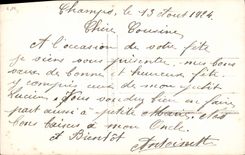 Champs, le 13 Aout 1904
Chère Cousine
A l'occasion de votre fête
je viens vous présenter mes bons
vœux de bonne et heureuse fête
y compris ceux de mon petit
Lucien. Vous voudrez bien en faire
part aussi à petite Marie, et des
bons baisers à mon Oncle.
A Bientôt
Antoinette